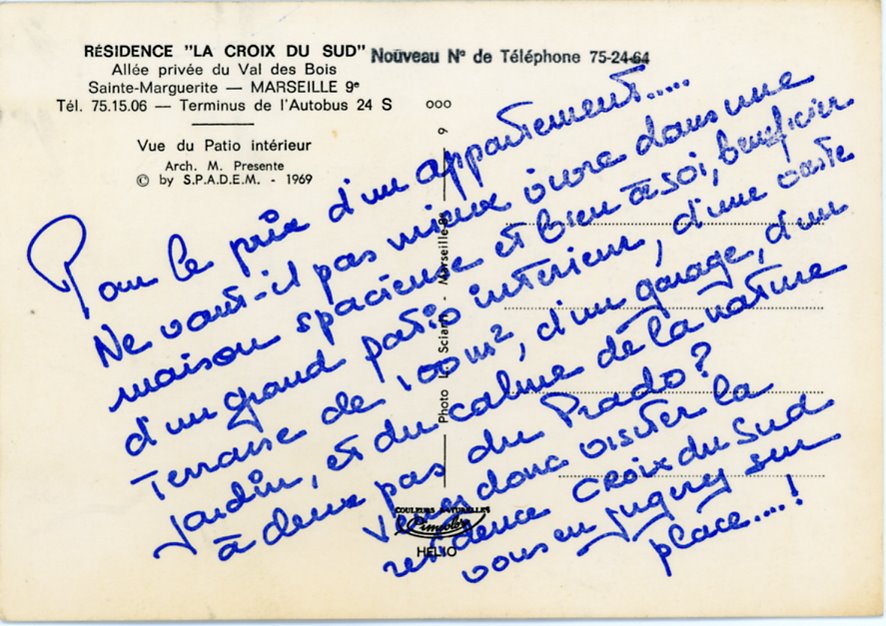 RÉSIDENCE "LA CROIX DU SUD"
Allée privée du Val des Bois
Sainte-Marguerite — MARSEILLE 9e
Tél. 75.15.06 — Terminus de l'Autobus 24 S
Vue du Patio intérieur
Arch. M. Presente
© by S.P.A.D.E.M. - 1969
Nouveau N° de Téléphone 75-24-64
Pour le prix d'un appartement.....
Ne vaut-il pas mieux vivre dans une
maison spacieuse et bien à soi, bénéficier
d'un grand patio intérieur, d'une vaste
Terrasse de 100 m², d'un garage, d'un
jardin, et du calme de la nature
à deux pas du Prado?
Venez donc visiter la
residence Croix du Sud
vous en jugerez sur
place....!
Photo Marseille
COULEURS NATURELLES
HELIO